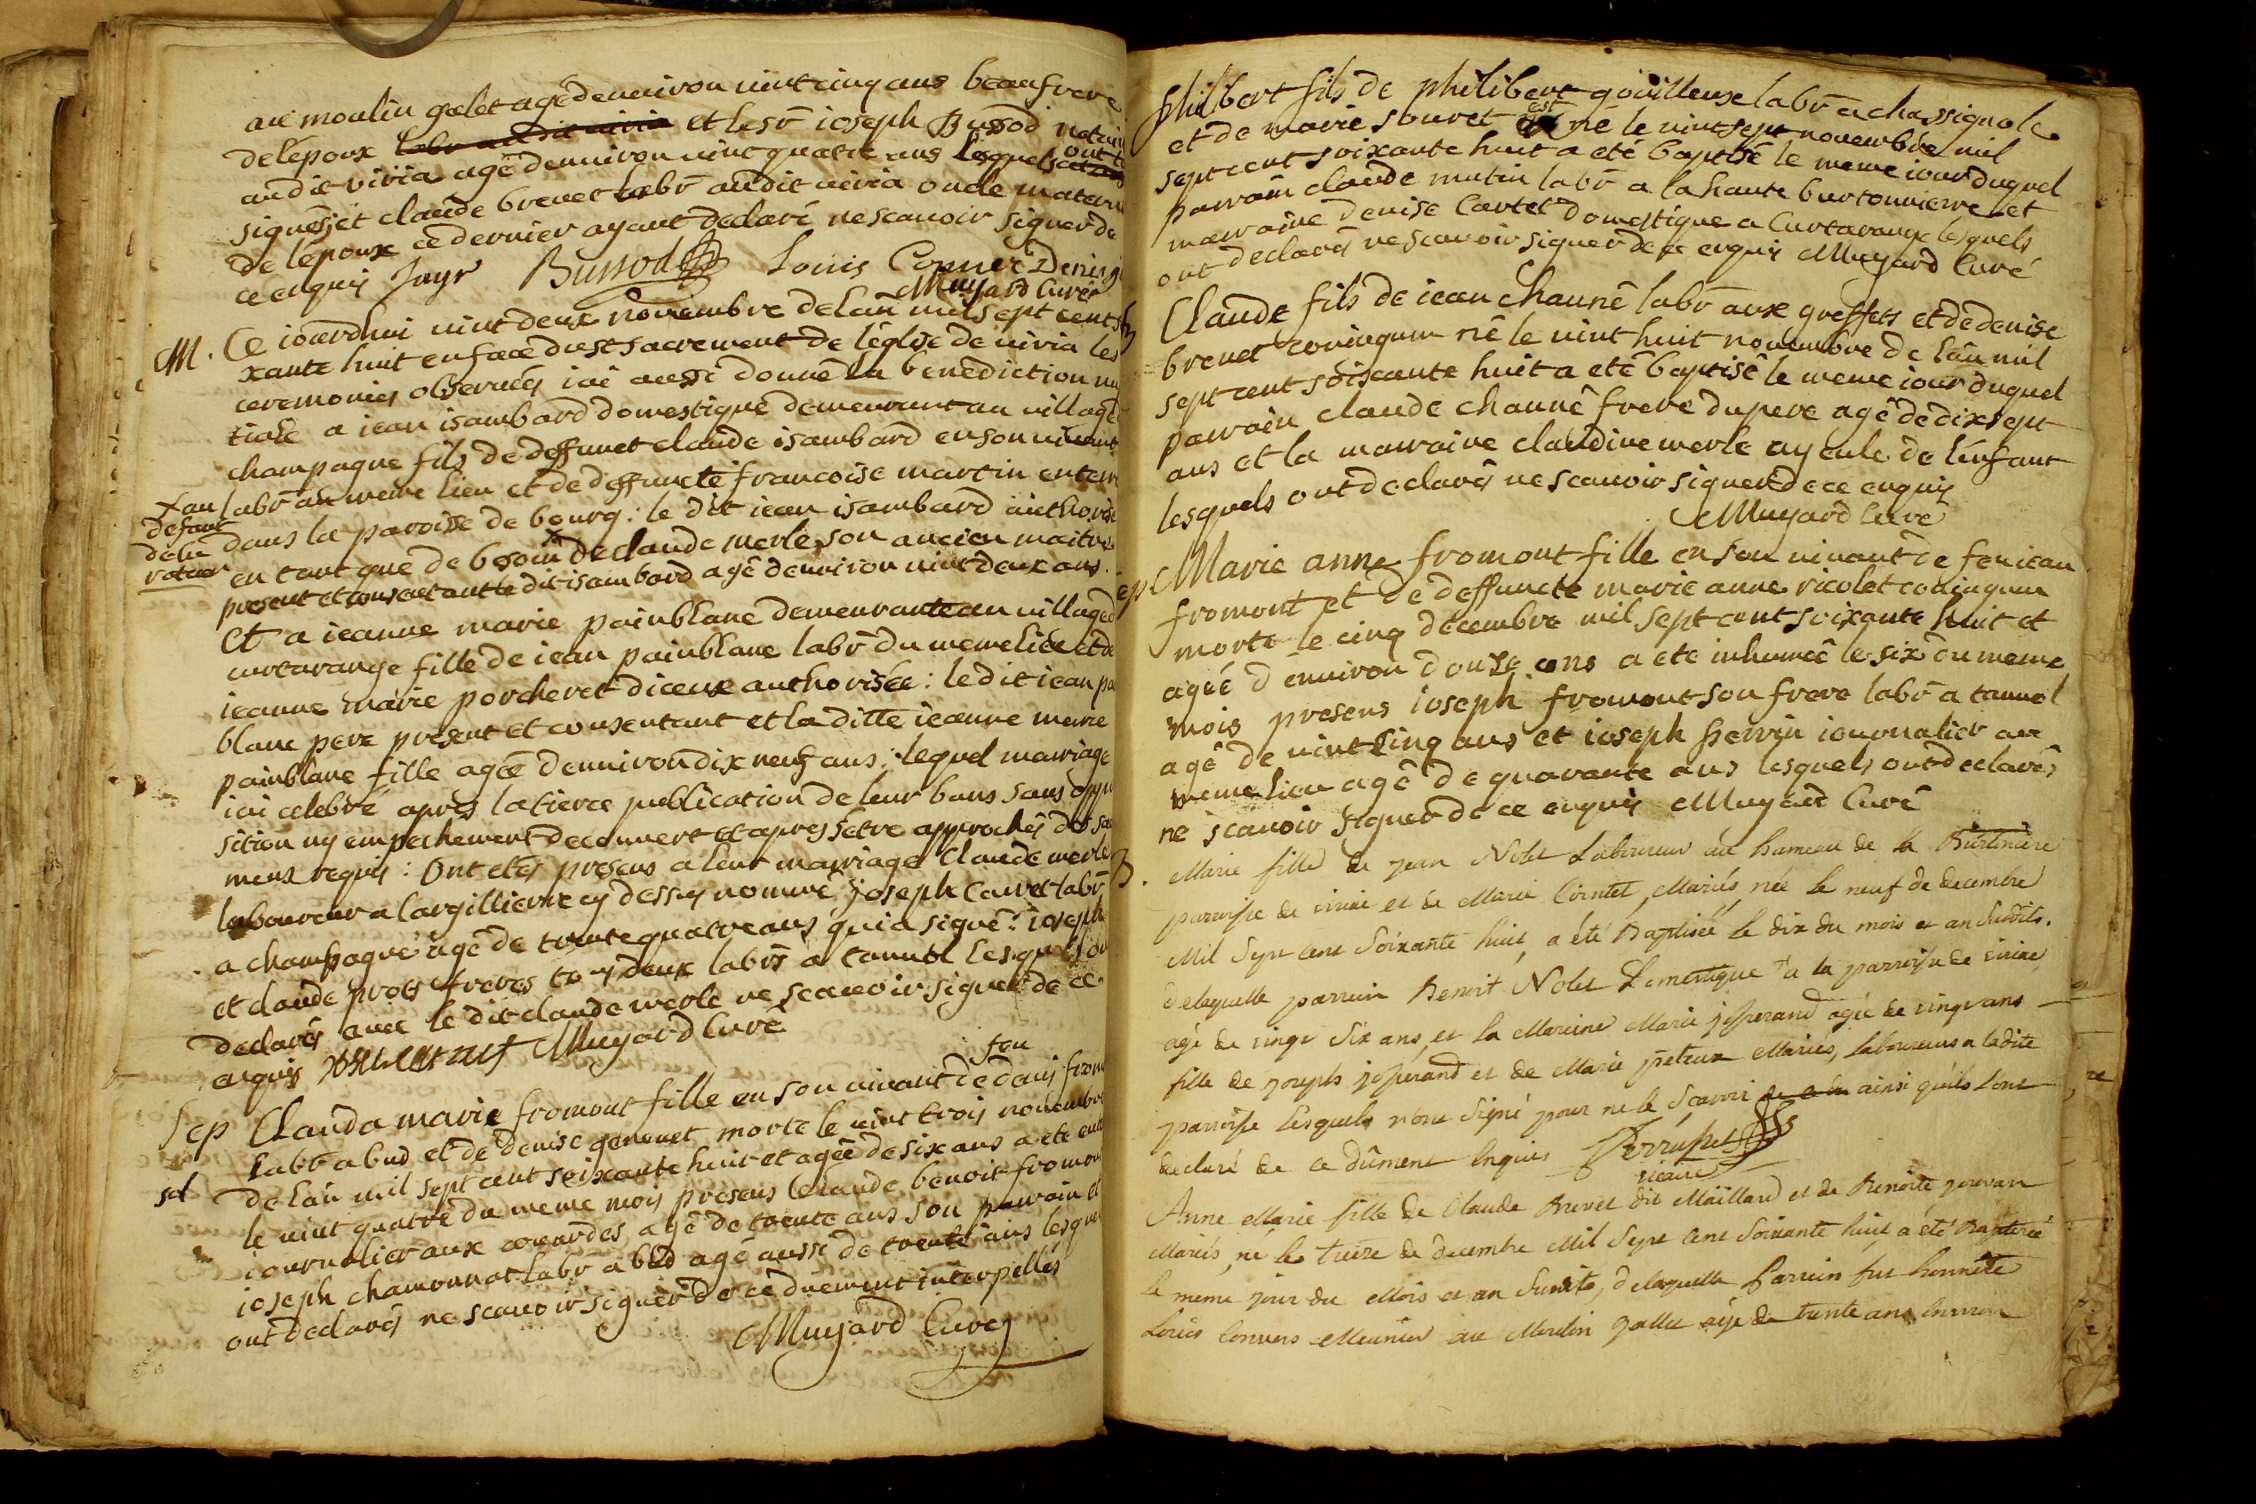 au moulin galet agé denuiron uint cinq ans beaufrere
de lepoux labr audit uiria et le sr ioseph Bussod notaire
audit viria agé denuiron uint quatre ans lesquels ont
signés et claude brenet labr audit uiria oncle maternel
de lépouse ce dernier ayant declaré ne scauoir signer de
ce enquis Jayr Bussod Louis
Muyard Curé
M. Ce iourdhui uint deux nouembre de lan mil sept cent soi
xante huit en face du st sacrement de l'église de uiria les
ceremonies obseruées iai aussi donné la benediction nup
tiale a iean isambard domestique demeurant au village
champagne fils de deffunct claude isambard en son uiuant
labr au meme lieu et de deffuncte francoise martin enterré
x au defaut de tuteur
dans la paroisse de bourg : le dit iean isambard authorisé
en tant que de besoin x de claude merle son ancien maitre
present et consentant le dit isambard agé denuiron uint deux ans.
Et a ieanne marie painblanc demeurante au village de
curtarange fille de iean painblanc labr du meme lieu et de
ieanne marie porcheret diceux authorisée : le dit iean pain
blanc pere present et consentant et la ditte ieanne marie
painblanc fille agée denuiron dix neuf ans : lequel mariage
iai celebré apres la tierce publication de leur bans sans oppo
sition ny empechement decouuert et apres setre approchés des sa
mens requis : Ont etés presens a leur mariage claude merle
laboureur a largillierre cy dessus nommé ioseph Caurel labr
a champagne agé de trente quatre ans qui a signé : ioseph
et claude prots freres tous deux labrs a tannol lesquels ont
declarés auec le dit claude merle ne scauoir signer de ce
enquis Muyard Curé
Sep Clauda marie fromont fille en son uiuant de feu denis from
labr a bud et de denise geneuet morte le uint trois nouembre
de lan mil sept cent soixante huit et agée de six ans a ete ent
le uint quatre du meme mois presens claude benoit fromont
iournalier aux couardes agé de trente ans son parrain et
ioseph chamonnot labr a bud agé aussi de trente ans lesque
ont declarés ne scauoir signer de ce duement interpellés
Muyard Curé
philibert fils de philibert goüilleux labr a chassignole
et de marie souret est né le uint sept nouembre mil
sept cent soixante huit a eté baptisé le meme iour duquel
parrain claude mutin labr a la haute burtonnierre et
marraine denise Cartet domestique a Curtarange lesquels
ont declarés ne scauoir signer de ce enquis Muyard Curé
Claude fils de iean chauné labr aux greffets et de denise
brenet coniugum né le uint huit nouembre de lan mil
sept cent soixante huit a eté baptisé le meme iour duquel
parrain claude chauné frere du pere agé de dix sept
ans et la marraine claudine merle ayeule de l'enfant
lesquels ont declarés ne scauoir signer de ce enquis
Muyard Curé
Marie anne fromont fille en son uiuant de feu iean
fromont et de deffuncte marie anne nicolet coniugum
morte le cinq decembre mil sept cent soixante huit et
agée d enuiron douze ans a eté inhumée le six du meme
mois presens ioseph fromont son frere labr a tannol
agé de uint cinq ans et ioseph perrin iournalier au
meme lieu agé de quarante ans lesquels ont declarés
ne scauoir signer de ce enquis Muyard Curé
B. Marie fille de jean Nolet Laboureur au hameau de la Burtiniere
parroisse de uiriat et de Marie Cointet, Mariés, née le neuf de decembre
Mil Sept Cent Soixante huit, a été Baptisée le dix du mois et an Susdits.
de laquelle parrain Benoit Nolet Domestique a la parroisse de viriat
agé de vingt six ans, et la Marraine Marie josserand agée de vingt ans
fille de joseph josserand et de Marie peteux Mariés, laboureurs a ladite
parroisse Lesquels n'ont Signé pour ne le Scavoir ainsi qu'ils l'ont
declaré de ce dûment Enquis
vicaire
Anne Marie fille de Claude Brevet dit Maillard et de Benoite
Mariés, né le treize de decembre Mil Sept Cent Soixante huit a été Baptisée
le meme jour du Mois et an Susdits, de laquelle Parrain fut honnete
Louis Convers Meunier au Moulin galle agé de trente ans Environ